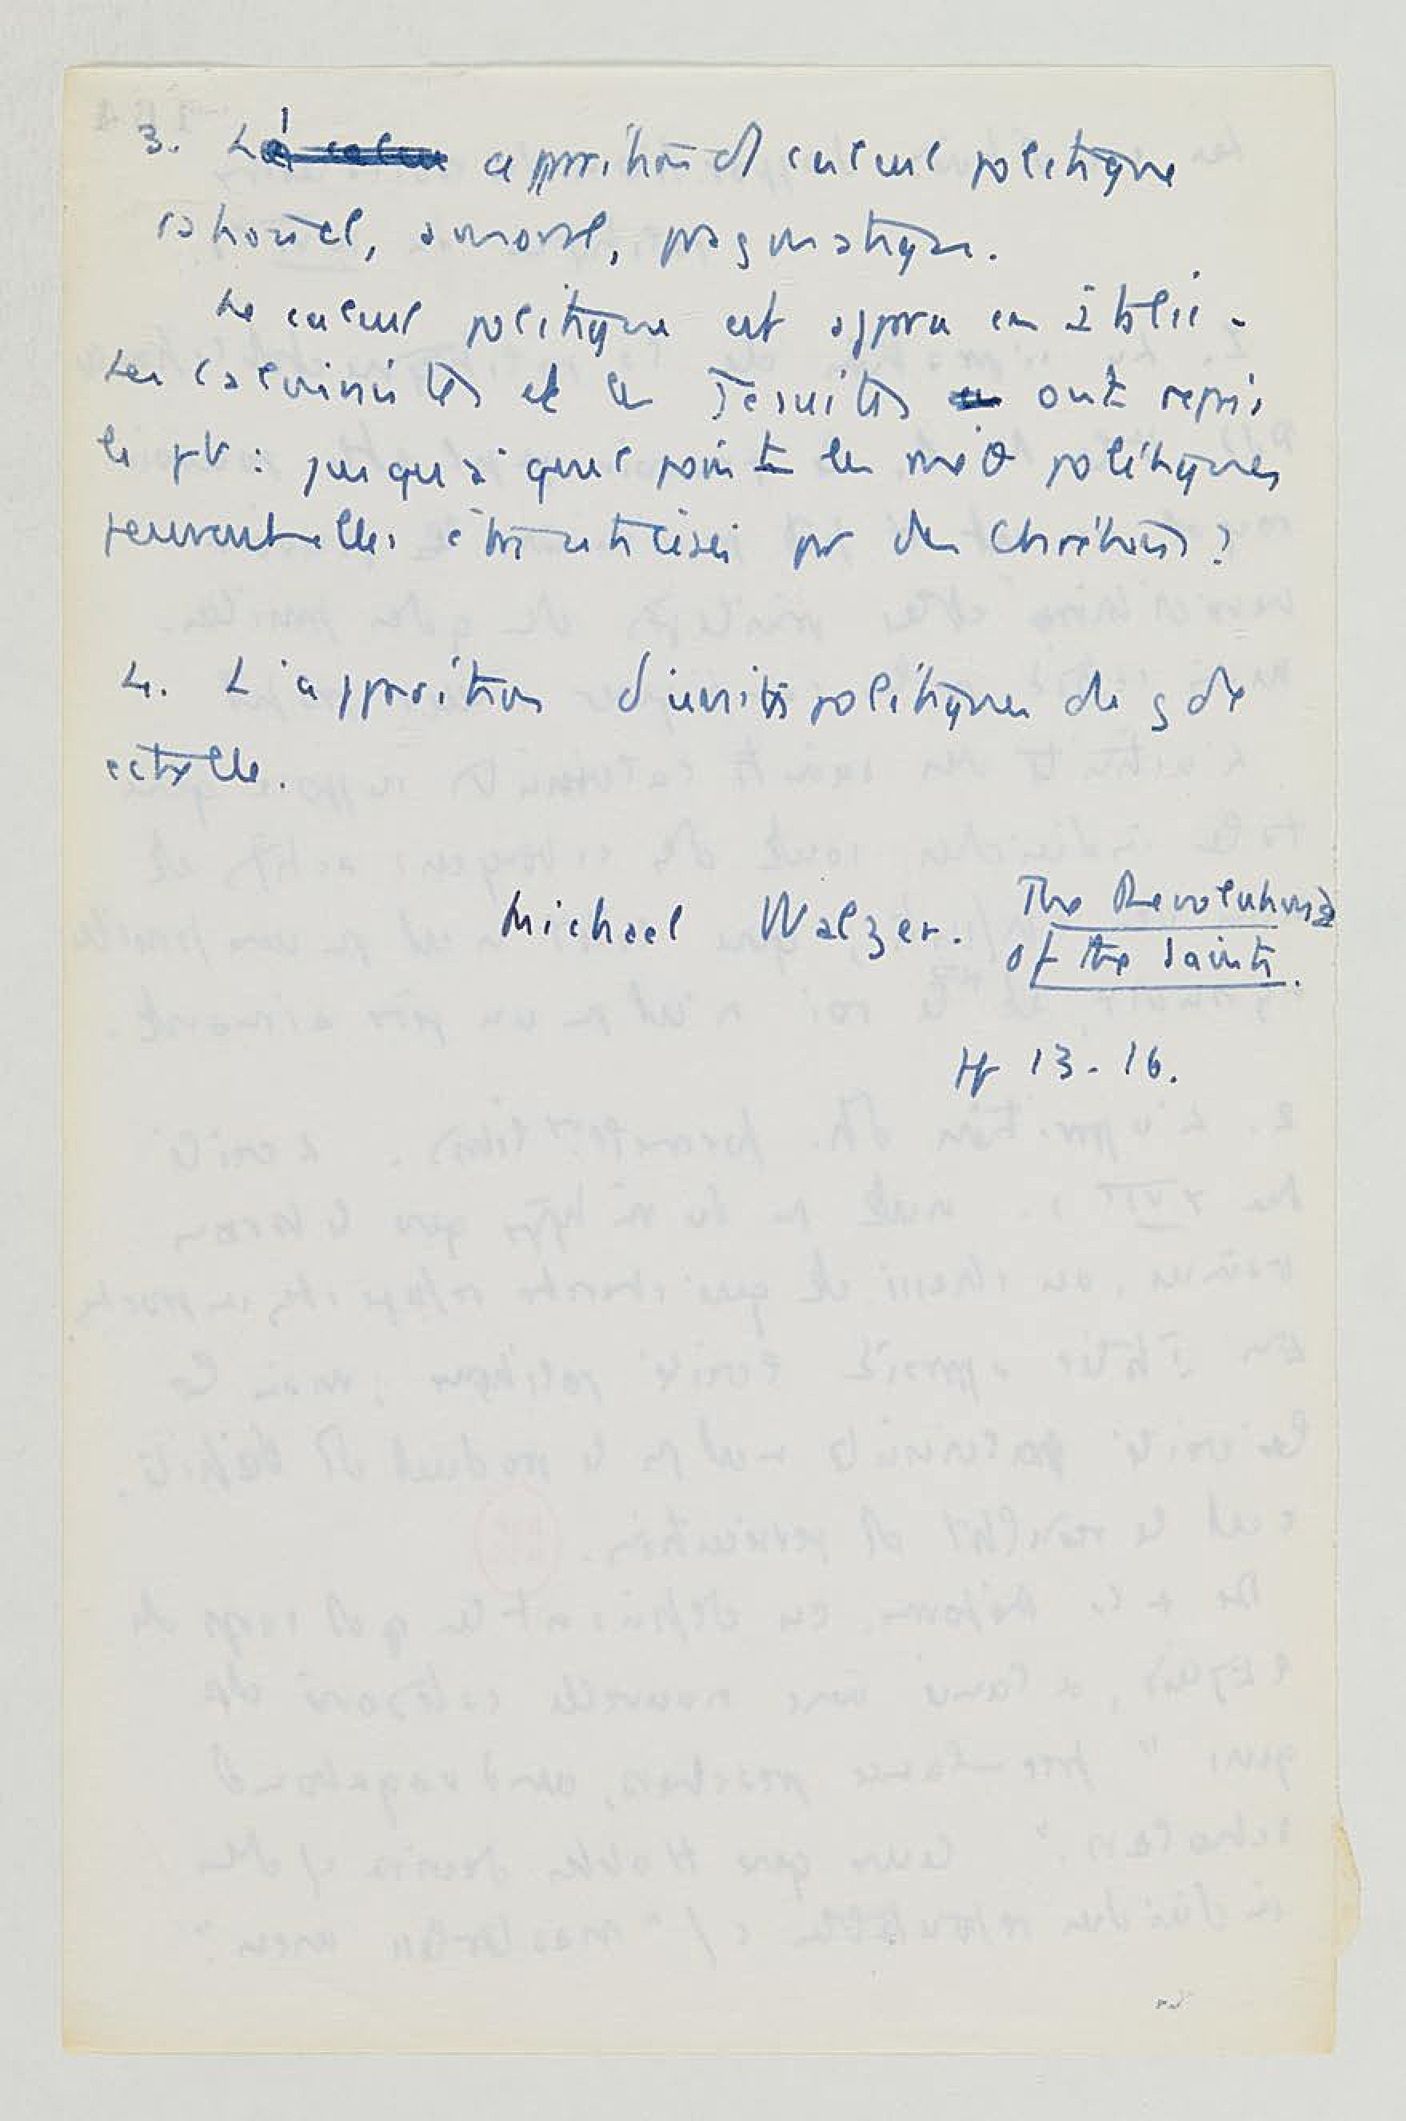 3. L' apparition d' calcul politique
rationel, amoral, pragmatique.
Le calcul politique est apparu en Italie.
Les calvinistes et les Jésuites ont repris
le pb : jusqu'à quel point les méth politiques
peuvent-elles être utilisées par des Chrétiens ?
4. L'apparition d'unités politiques de gde
échelle.
Michael Walzer. The Revolution
of the Saints.
pp 13-16.